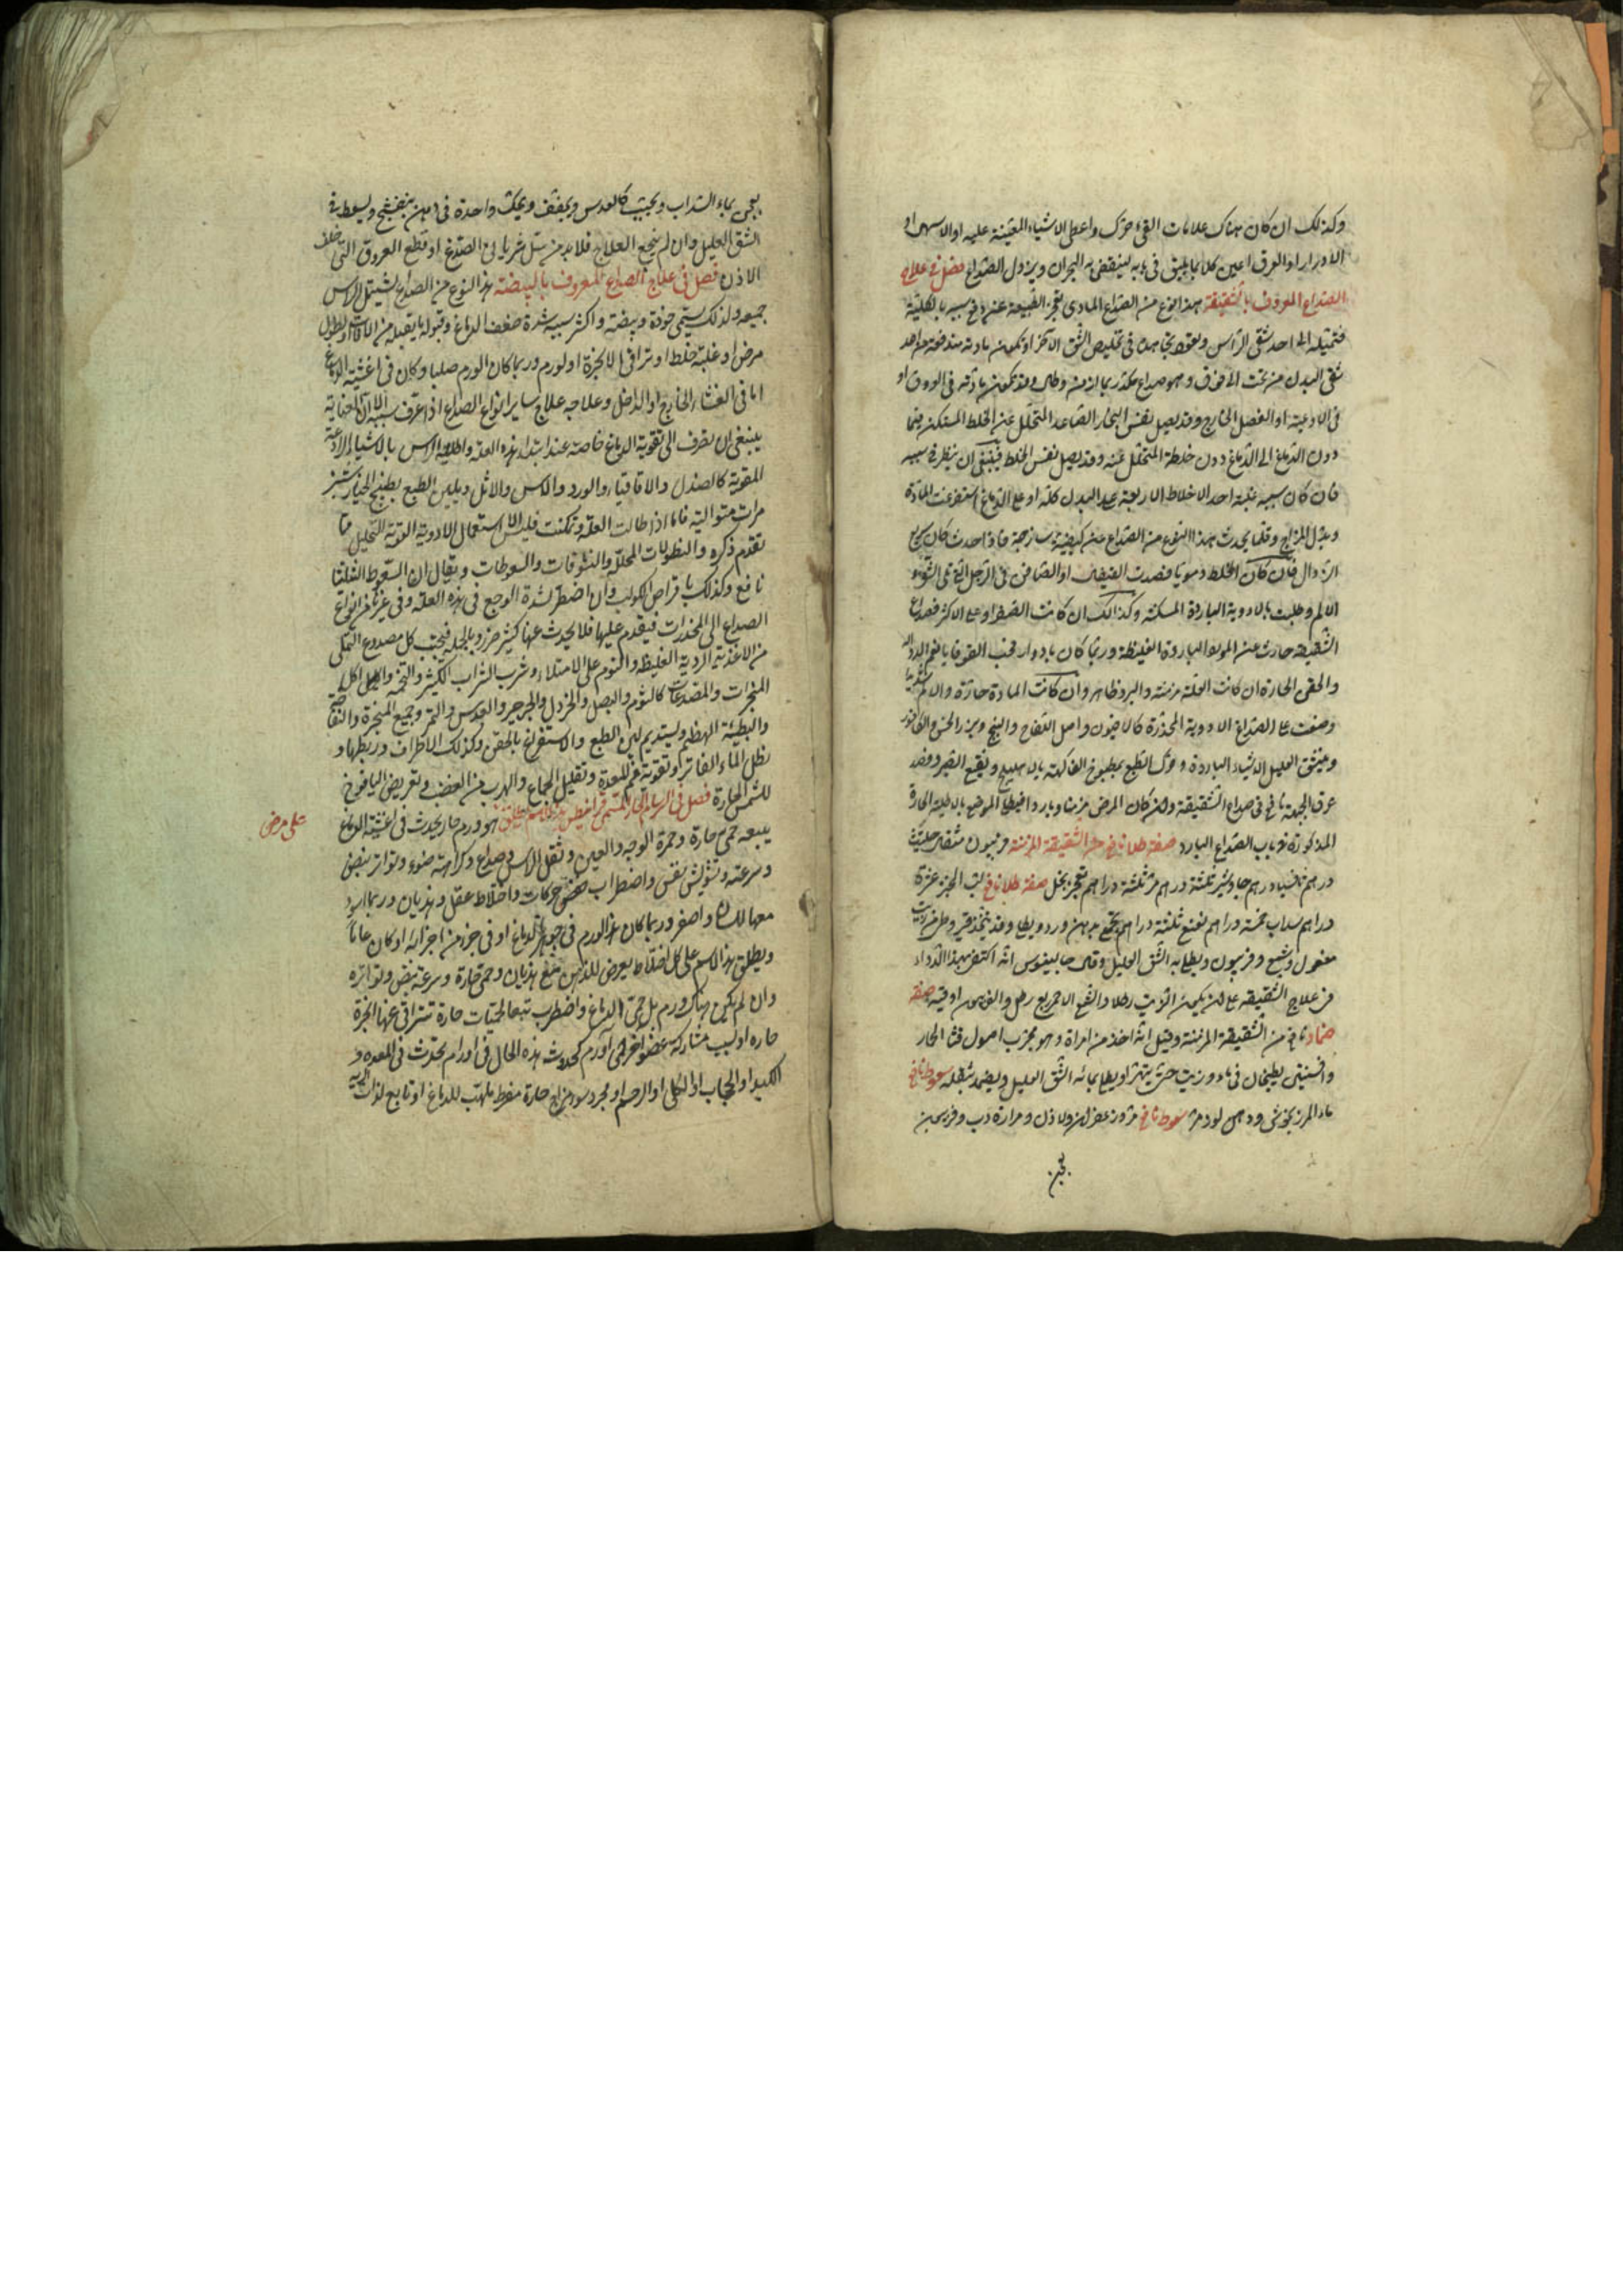 وكذلك ان كان هناك علامات القئ حرك واعطى الاشياء المعينة عليه او الاسهال او
الادرار او العرق اعين كلا بما يليق فى بابه لينقضى به البحران ويزول الصداع فصل فى علاج
الصداع المعروف بالشقيقة هذا نوع من الصداع المادى تعجز الطبيعة عن دفع سببه بالكلية
فتميله الى احد شقى الرأس وتعجز فى تخليص الشق الآخر او تكون مادته مندفعة من احد
شقى البدن من تحت الى فوق وهو صداع وقد تكون مادته فى العروق او
فى الاوعية او الفصل الخارج وقد يصل نفس البخار الصاعد المتحلل عن الخلط المستكن فيما
دون الدماغ الى الدماغ دون خلطة المتحلل عنه وقد يصل نفس الخلط فينبغى ان ينظر فى سببه
فان كان سببه غلبة احد الاخلاط الاربعة على البدن كله او على الدماغ استفرغت المادة
وبدل المزاج وقلما يحدث هذا النوع من الصداع عن كيفية ساذجة فاذا حدث كان سريع
الزوال فان كان الخلط دمويا فصدت القيفال او الصافن فى الرجل التى تلى الشق
الالم وطليت بالادوية الباردة المسكنة وكذلك ان كانت الصفراء وعلى الاكثر فصداع
الشقيقة حادث عن المواد الباردة الغليظة وربما كان بادوار فحب القوقايا نعم الدواء له
والحقن الحارة ان كانت العلة مزمنة والبرد ظاهر وان كانت المادة حارة والالم شديدا
وضعت على الصداغ الادوية المخدرة كالافيون واصل اللفاح والبنج وبزر الخس والكافور
وينشق العليل الاشياء الباردة وحرك الطبع بمطبوخ الفاكهة بالاهليلج ونقيع الصبر وفصد
عرق الجبهة نافع فى صداع الشقيقة وان كان المرض مزمنا وباردا فيطلى الموضع بالاطلية الحارة
المذكورة فى باب الصداع البارد صفة طلا نافع من الشقيقة المزمنة فربيون مثقال حلتيت
درهم درهم جاوشير ثلثة دراهم مر ثلثة دراهم تعجن بخل صفة طلا نافع لب الخبز عشرة
دراهم سداب خمسة دراهم نعنع ثلثة دراهم يجمع بدهن ورد ويطلى وقد يتخذ من زيت
مغسول وشمع وفربيون ويطلى به الشق العليل وقال جالينوس انه اكتفى بهذا الدواء
فى علاج الشقيقة على ان يكون الزيت رطلا والشمع الاحمر ربع رطل والفربيون اوقية صفة
ضماد نافع من الشقيقة المزمنة وقيل انه اخذ من امراة وهو مجرب اصول قثا الحمار
وافسنتين يطبخان فى ماء وزيت حتى يتهرا ويطلى بمائه الشق العليل ويضمد بثفله سعوط نافع
ماء المرزنجوش ودهن لوز مر سعوط نافع مر وزعفران ولاذن ومرارة دب وفربيون
يعجن
يعجن بماء السداب ويحبب كالعدس ويجفف ويحك واحدة فى دهن بنفسج ويسعط فى
الشق العليل وان لم ينجع العلاج فلا بد من سل شريانى الصدغ او قطع العروق التى خلف
الاذن فصل فى علاج الصداع المعروف بالبيضة هذا النوع من الصداع يشتمل الراس
جميعه ولذلك يسمى خوذة وبيضة واكثر سببه شدة ضعف الدماغ وقبوله ما يقبله من الافات لطول
مرض او غلبة خلط او تراقى الابخرة او لورم وربما كان الورم صلبا وكان فى اغشية الدماغ
اما فى الغشاء الخارج او الداخل وعلاجه علاج ساير انواع الصداع اذا عرف سببه الا ان العناية
ينبغى ان تصرف الى تقوية الدماغ خاصة عند ابتداء هذه العلة واطلية الراس بالاشياء الرادعة
المقوية كالصندل والاقاقيا والورد والاس والاثل ويلين الطبع بطبيخ الخيار شنبر
مرات متوالية فاما اذا طالت العلة وتمكنت فليس الا استعمال الادوية القوية التحليل مما
تقدم ذكره والنطولات المحللة والنشوقات والسعوطات ويقال ان السعوط
نافع وكذلك باقراص الكوكب وان اضطر لشدة الوجع فى هذه العلة وفى غيرها من انواع
الصداع الى المخدرات فيقدم عليها فلا يحدث عنها كثير ضرر وبالجملة فيجتنب كل مصدوع التملى
من الاغذية الردية الغليظة والنوم على الامتلاء وشرب الشراب الكثير والتخمة واكل
المبخرات والمصدعات كالثوم والبصل والخردل والجرجير والعدس والتمر وجميع المبخرة والنفاخة
والبطيئة الهضم وليستديم لين الطبع والاستفراغ بالحقن وكذلك الاطراف وربطها و
نطل الماء الفاتر وتقوية فم المعدة وتقليل الجماع والهرب من الغضب وتعريض اليافوخ
للشمس الحارة فصل فى السرسام الحار المسمى قرانيطس وهذا الاسم يطلق هو ورم حار يحدث فى اغشية الدماغ
على مرض
يتبعه حمى حارة وحمرة الوجه والعين وثقل الراس وصداع وكراهة ضوء وتواتر نبض
وسرعته وتشويش نفس واضطراب حركات واختلاط عقل وهذيان وربما اسود
معها لسان واصفر وربما كان هذا الورم فى جوهر الدماغ او فى جزء من اجزائه او كان عاما
ويطلق هذا الاسم على كل اختلاط يعرض للذهن مع هذيان وحمى حارة وسرعة نبض وتواتره
وان لم يكن هناك ورم بل حمى الدماغ واضطرب تبعا لحميات حارة تتراقى عنها ابخرة
حارة او لسبب مشاركة عضو اخر فى ورم كحدوث هذه الحال فى اورام تحدث فى المعدة و
الكبد او الحجاب او الكلى او الرحم او مجرد سوء مزاج حارة مفرط ملهب للدماغ او تابع لذات الرية